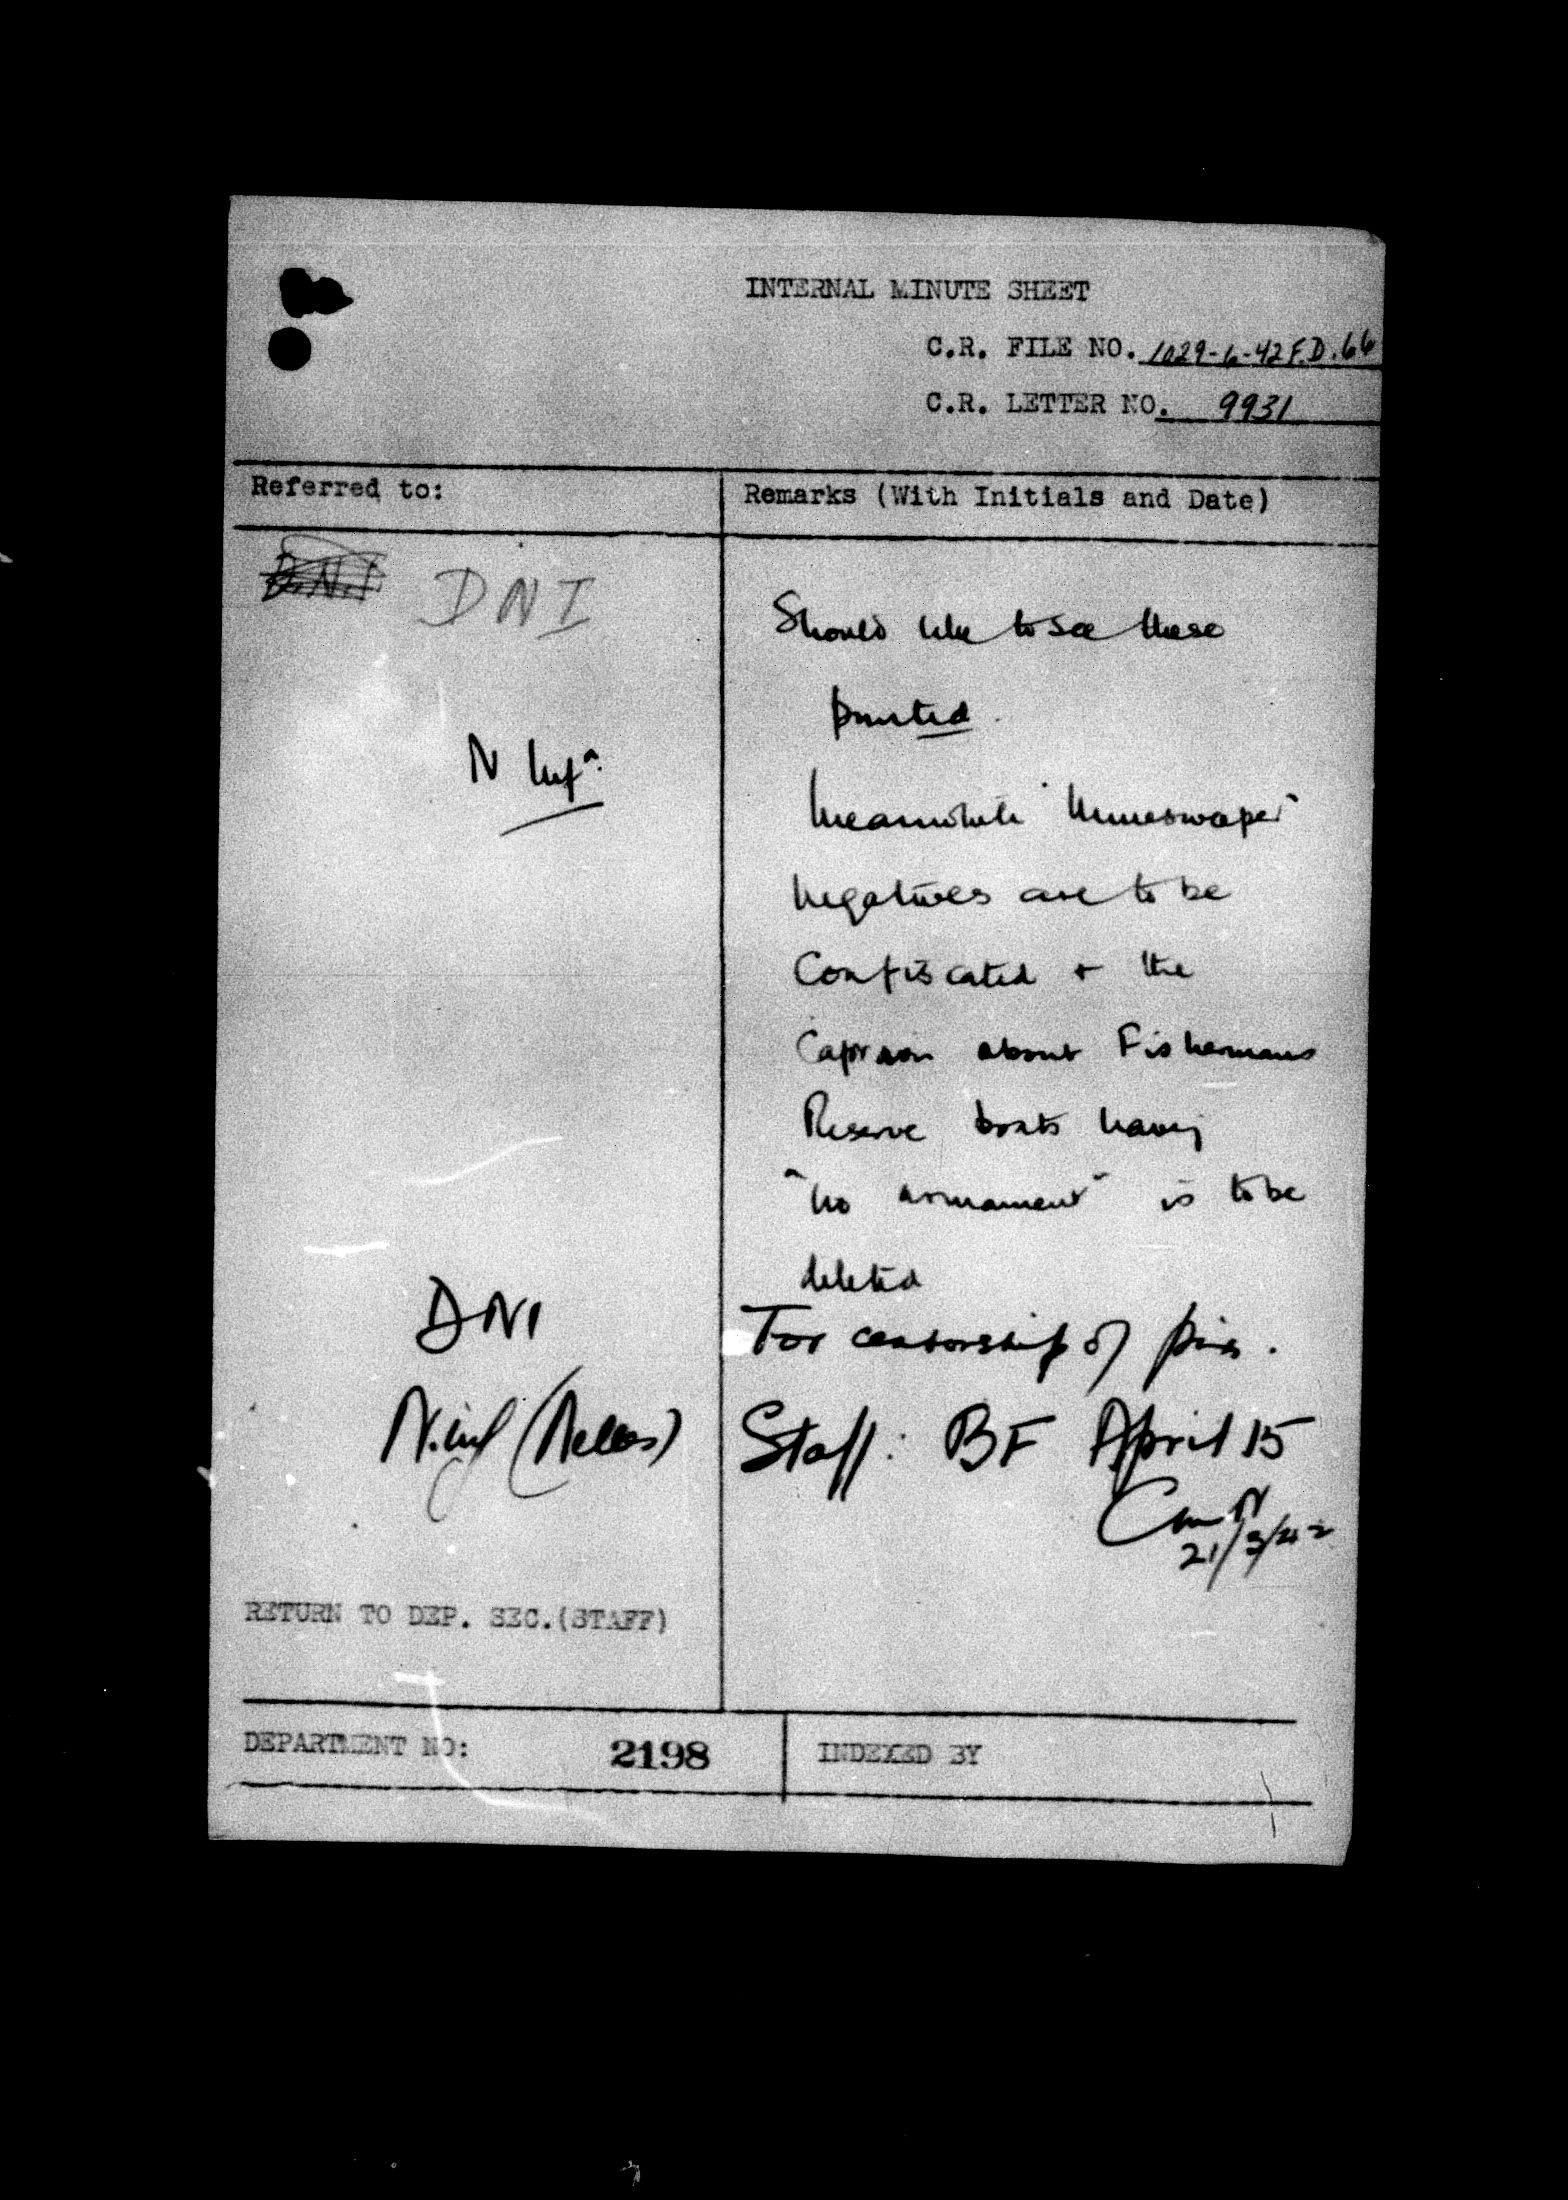 INTERNAL MINUTE SHEET
C.R. FILE NO. 1029-6-42 F.D. 66
C.R. LETTER NO. 9931
Referred to:
Remarks (With Initials and Date)
D.N.I DNI
Should like to see these
printed.
N Infn.
Meanwhile "Minesweeper"
negatives are to be
Confiscated + the
Caption about Fishermans
Reserve boats having
"no armament" is to be
deleted
DNI
For censorship of
N.inf
Staff: BF April 15
21/3/42
RETURN TO DEP. SEC.(STAFF)
DEPARTMENT NO: 2198
INDEXED BY